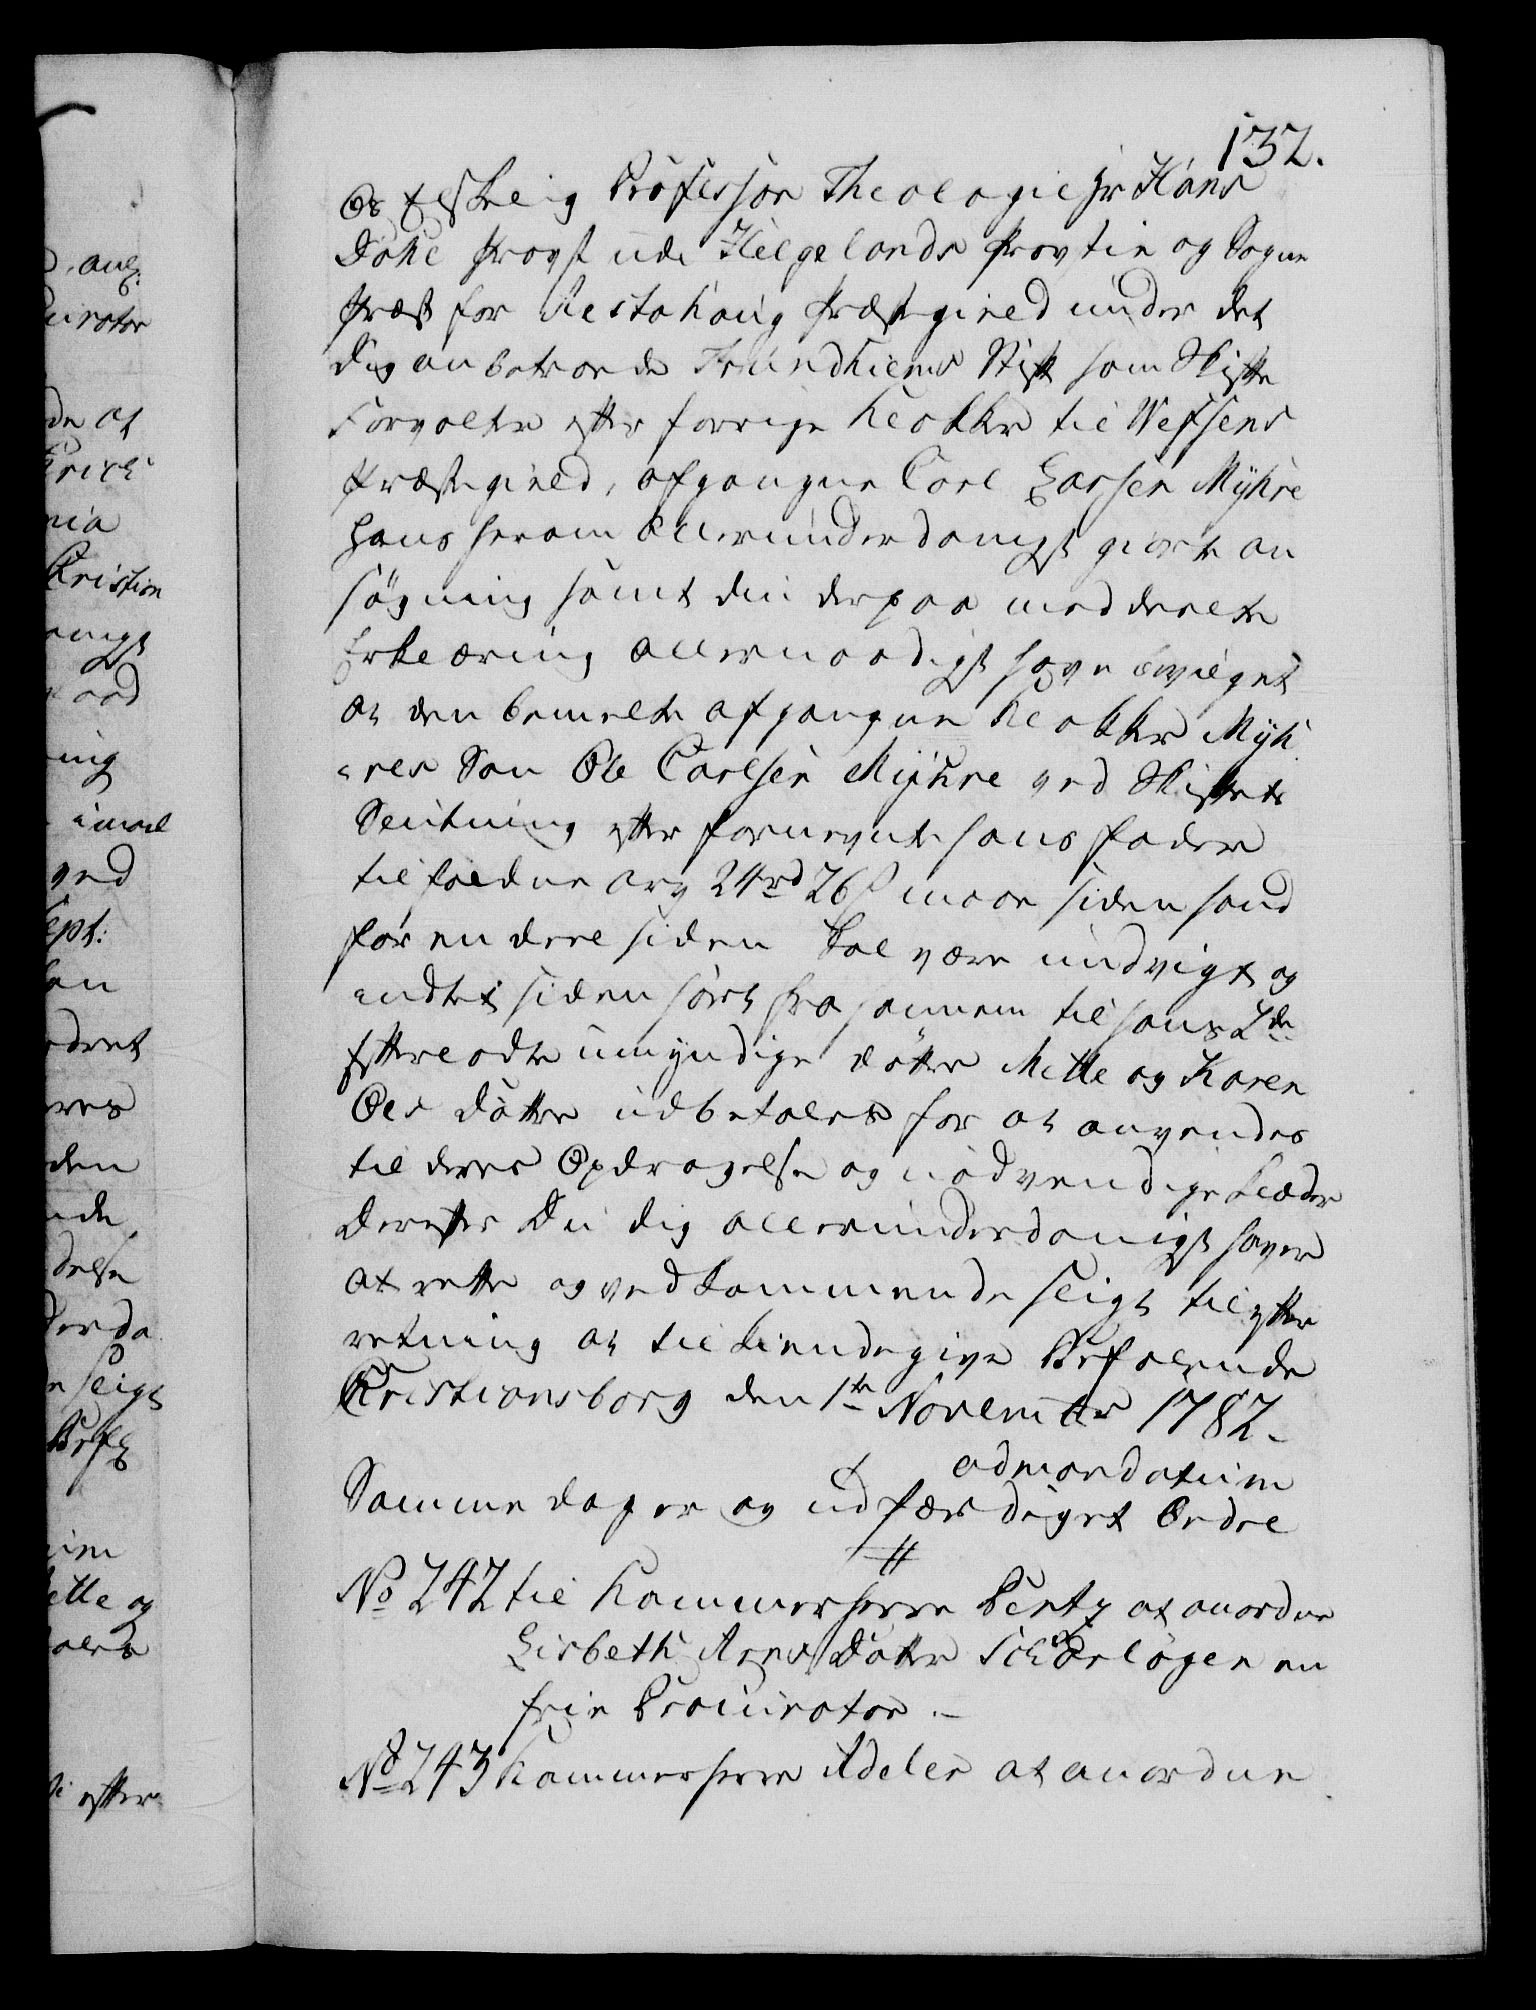 132.
Os Elskelig Professor Theologie Hr Hans
Dahl Provst udi Helgelands Provstie og Sogne
Præst for Alstahoug Præstegield under det
Dig anbetroede Trundhiems Stift som Skifte
Forvalter efter forrige Klokker til Wefsens
Præstegield, afgangne Carl Larsen Myhre
hans herom allerunderdanigst giorte an
søgning samt din derpaa meddeelte
Erklæring allernaadigst have bevilget
at den bemelte afgangne Klokker Myh
res Søn Ole Carlsen Myhre ved Skiftets
Slutning efter fornevnte hans Fader
tilfaldne Arv 24rd 26s maae siden hand
for en deel siden skal være undvigt og
endtet siden hørt fra hannem til hans 2de
Efterladte umyndige døttre Mette og Karen
Ols Døttre udbetales for at anvendes
til deres Opdragelse og nødvendige klæder
Derefter Du dig allerunderdanigst haver
at rette og vedkommende sligt til efter
retning at tilkiendegive Befalende
Christiansborg den 1te November 1782.
admandatum
Samme dag er og udfærdiget Ordre
No 242 til Kammerherre Pentz at anordne
Lisbeth Arns Datter Schiærløgen en
frie Procurator.
No 243 Kammerherre Adeler at anordne